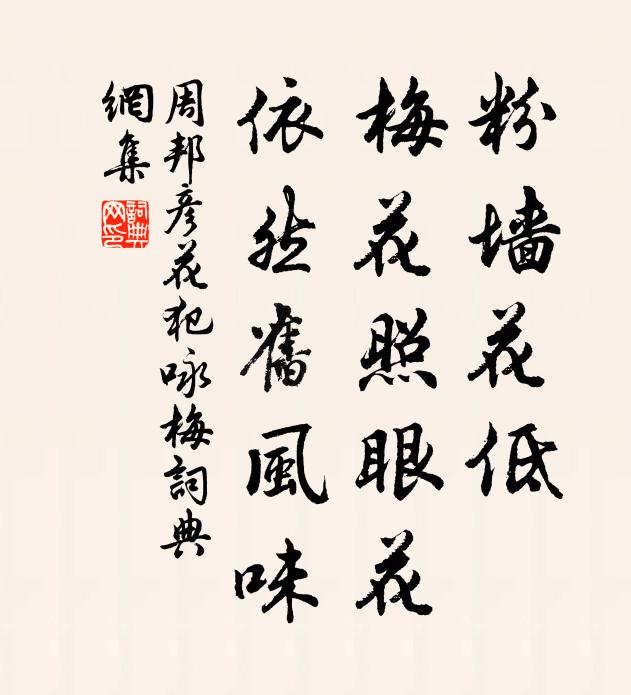 粉墙花低
梅花照眼花
依然舊風味
周邦彦花犯咏梅詞典
網集
詞典
网印